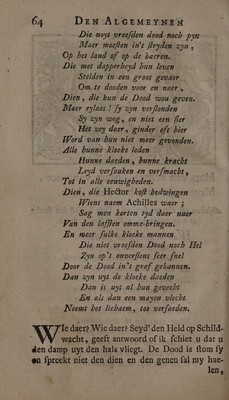 64 DEN ALGEMEYNEN
Die noyt vreesden dood noch pyn
Maer moesten in't stryden zyn,
Op het land of op de baeren.
Die met dapperheyd hun leven
Stelden in een groot gevaer
Om te dooden voor en naer,
Dien, die hun de Dood wou geven.
Maer eylaes! sy zyn verslonden
Sy zyn weg, en niet een sier
Het zey daer, ginder oft hier
Word van hun niet meer gevonden.
Alle hunne kloeke leden
Hunne daeden, hunne kracht
Leyd versonken en versmacht,
Tot in alle eeuwigheden.
Dien, die Hector kost bedwingen
Wiens naem Achilles waer;
Sag men korten tyd daer naer
Van den lesten omme-bringen.
En meer sulke kloeke mannen
Die niet vreesden Dood noch Hel
Zyn op't onversiens seer snel
Door de Dood in't graf gebannen.
Dan zyn uyt de kloeke daeden
Dan is uyt al hun gevecht
En als dan een mayen vlecht
Neemt het lichaem, tot versaeden.
Wie daer? Wie daer? Seyd' den Held op Schild-
wacht, geeft antwoord of ik schiet u dat u
den damp uyt den hals vliegt. De Dood is stom sy
en spreekt niet den dien en den genen sal my hae-
len,